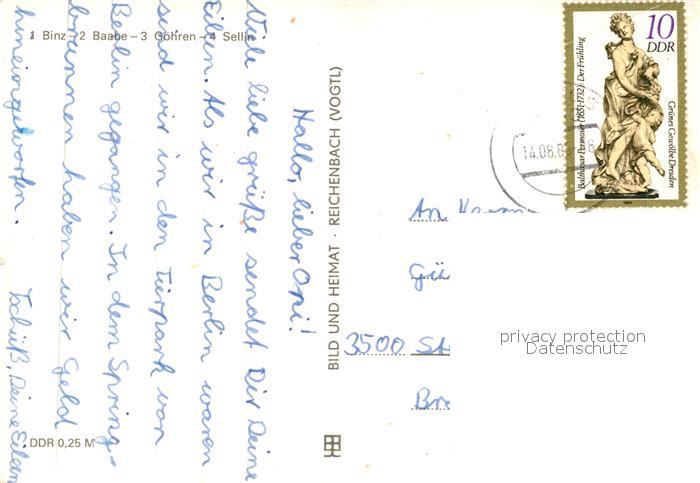 1 Binz – 2 Baabe – 3 Göhren – 4 Sellin
Hallo, lieber Opi!
Viele liebe grüße sendet Dir Deine
Eileen. Als wir in Berlin waren
sind wir in den Tierpark von
Berlin gegangen. In dem Spring-
brunnen haben wir Geld
hineingeworfen.
Tschüß, Deine Eileen
DDR 0,25 M
BILD UND HEIMAT · REICHENBACH (VOGTL)
10
DDR
Balthasar Permoser (1651-1732): Der Frühling
Grünes Gewölbe Dresden
1984
14.08.
An
3500
privacy protection
Datenschutz